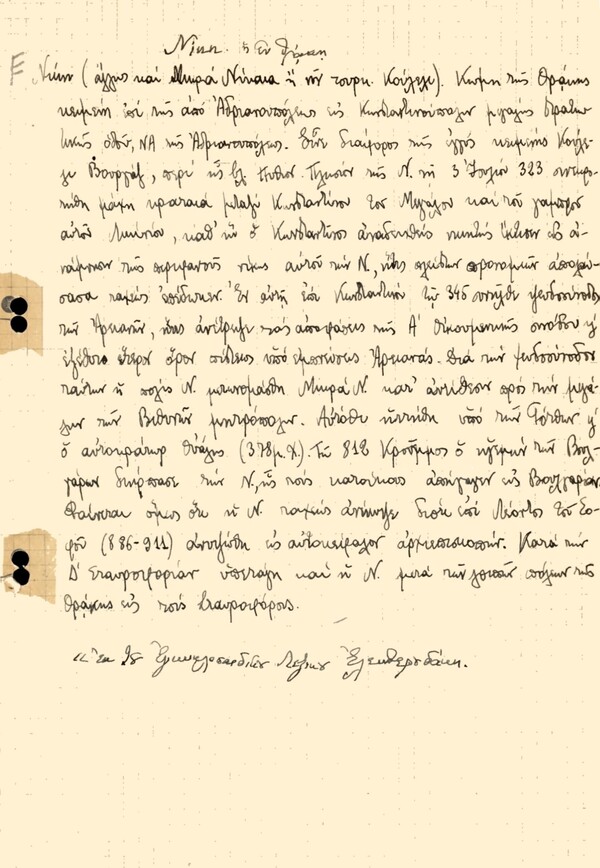 Νίκη ἡ ἐν Θράκῃ
Νίκη (ἄλλως καὶ Μικρὰ Νίκαια ἢ νῦν τουρκ. Κούλελι). Κώμη τῆς Θράκης
κειμένη ἐπὶ τῆς ἀπὸ Ἀδριανουπόλεως εἰς Κωνσταντινούπολιν μεγάλης στρατιω
τικῆς ὁδοῦ, ΝΑ τῆς Ἀδριανουπόλεως. Εἶνε διάφορος τῆς ἐγγὺς κειμένης Κούλε
λι Βουργάζ, περὶ ἧς βλ. Πύθιον. Πλησίον τῆς Ν. τῇ 3 Ἰουλίου 323 συνεκρο
τήθη μάχη κραταιὰ μεταξὺ Κωνσταντίνου τοῦ Μεγάλου καὶ τοῦ γαμβροῦ
αὐτοῦ Λικινίου, καθ' ἣν ὁ Κωνσταντῖνος ἀναδειχθεὶς νικητὴς ἔκτισεν εἰς ἀ
νάμνησιν τῆς περιφανοῦς νίκης αὐτοῦ τὴν Ν., ἥτις πλείστων προνομίων ἀπολαύ
σασα ταχέως ἐπέδωκεν. Ἐν αὐτῇ ἐπὶ Κωνσταντίου τῷ 345 συνῆλθε ψευδοσύνοδος
τῶν Ἀρειανῶν, ἥτις ἀνέτρεψε τὰς ἀποφάσεις τῆς Α' Οἰκουμενικῆς συνόδου κ'
ἐξέθετο ἕτερον ὅρον πίστεως ὑπὸ ἐμπνεύσεως Ἀρειανάς. Διὰ τὴν ψευδοσύνοδον
ταύτην ἡ πόλις Ν. μετωνομάσθη Μικρὰ Ν. κατ' ἀντίθεσιν πρὸς τὴν μεγά
λην τῶν Βιθυνῶν μητρόπολιν. Αὐτόθι ἡττήθη ὑπὸ τῶν Γότθων κ'
ὁ αὐτοκράτωρ Οὐάλης (378 μ.Χ.). Τῷ 812 Κροῦμμος ὁ ἡγεμὼν τῶν Βουλ
γάρων διήρπασε τὴν Ν., ἧς τοὺς κατοίκους ἀπήγαγεν εἰς Βουλγαρίαν.
Φαίνεται ὅμως ὅτι ἡ Ν. ταχέως ἀνέκυψε διότι ἐπὶ Λέοντος τοῦ Σο
φοῦ (886-911) ἀνυψώθη εἰς αὐτοκέφαλον ἀρχιεπισκοπήν. Κατὰ τὴν
Δ' Σταυροφορίαν ὑπετάγη καὶ ἡ Ν. μετὰ τῶν λοιπῶν πόλεων τῆς
Θράκης εἰς τοὺς Σταυροφόρους.
"Ἐκ τοῦ Ἐγκυκλοπαιδικοῦ Λεξικοῦ Ἐλευθερουδάκη.